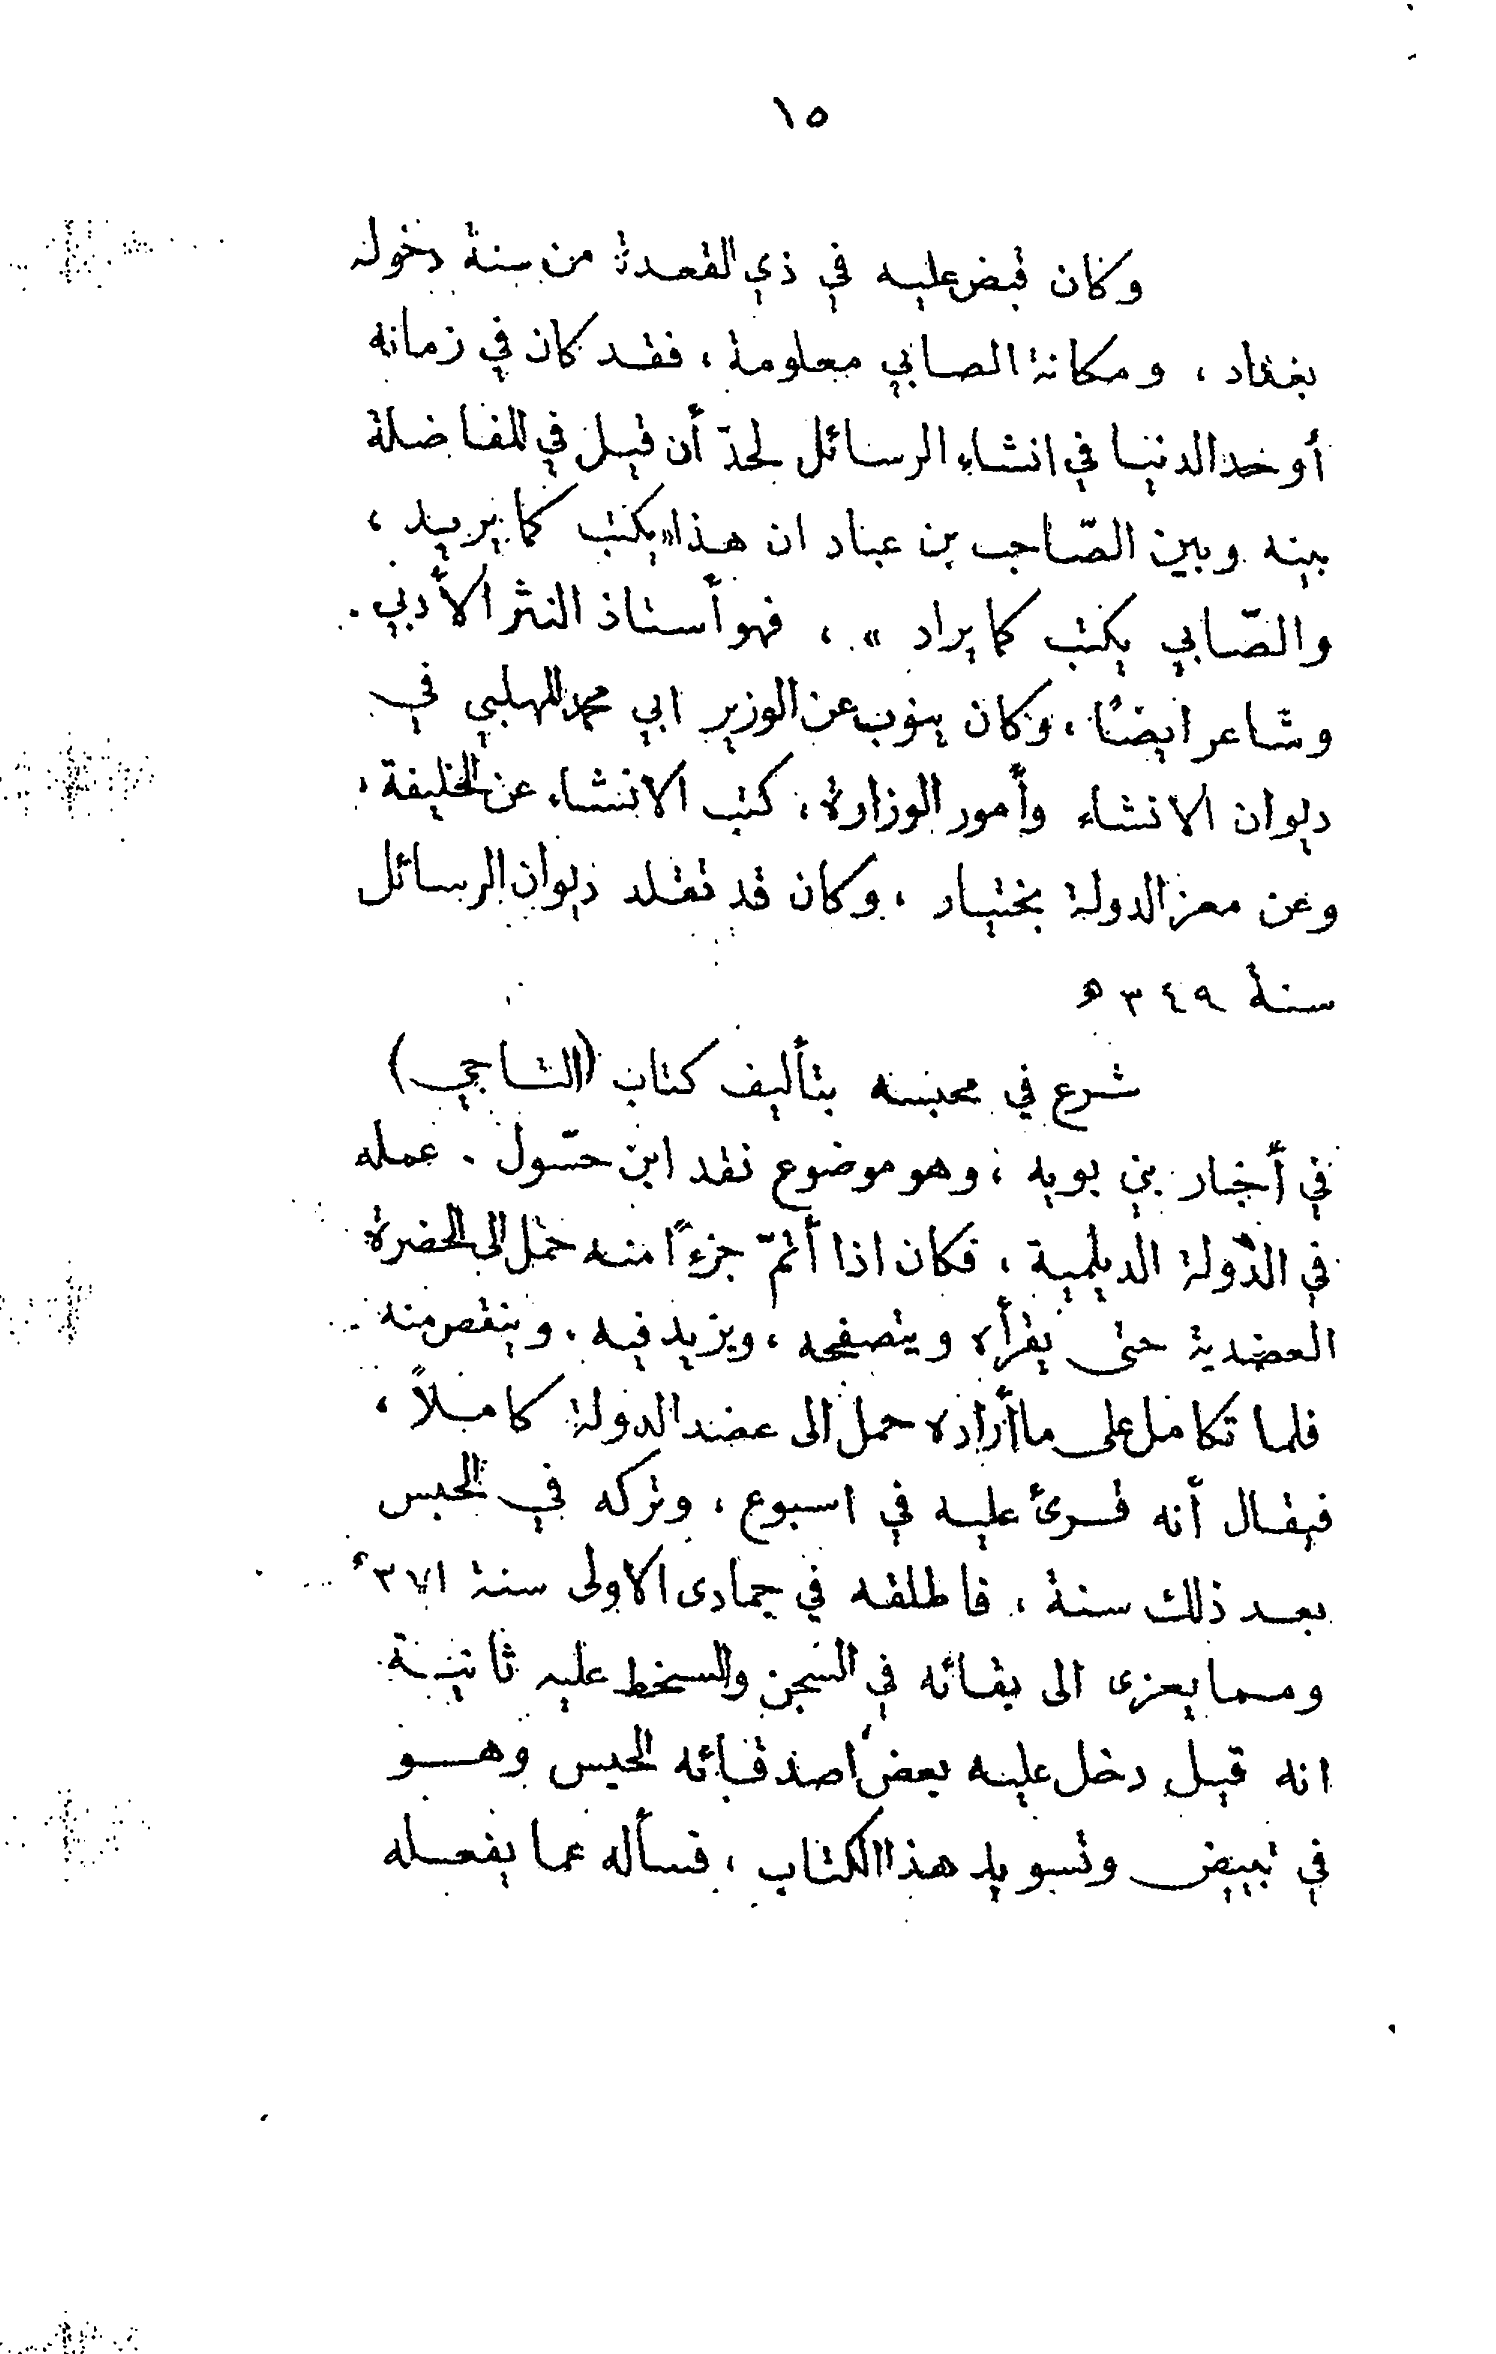 ١٥
وكان قبض عليه في ذي القعدة من سنة دخوله
بغداد ، ومكانة الصابي معلومة ، فقد كان في زمانه
أوحد الدنيا في انشاء الرسائل لحدّ أن قيل في المفاضلة
بينه وبين الصّاحب بن عباد ان هذا «يكتب كما يريد ،
والصّابي يكتب كما يراد » ، فهو أستاذ النثر الأدبي .
وشاعر ايضًا ، وكان ينوب عن الوزير ابي محمد المهلبي في
ديوان الانشاء وأمور الوزارة ، كتب الانشاء عن الخليفة ،
وعن معز الدولة بختيار ، وكان قد تقلد ديوان الرسائل
سنة ٣٤٩ ه
شرع في محبسه بتأليف كتاب (التاجي)
في أخبار بني بويه ، وهو موضوع نقد ابن حسّول . عمله
في الدّولة الديلمية ، فكان اذا أتمّ جزءًا منه حمل الى الحضرة
العضدية حتى يقرأه ويتصفحه ، ويزيد فيه . وينقص منه
فلما تكامل على ما أراده حمل الى عضد الدولة كاملاً ،
فيقال أنه قرئ عليه في اسبوع ، وتركه في الحبس
بعد ذلك سنة ، فاطلقه في جمادى الاولى سنة ٣٧١
ومما يعزى الى بقائه في السجن والسخط عليه ثانية
انه قيل دخل عليه بعض اصدقائه الحبس وهو
في تبييض وتسويد هذا الكتاب ، فسأله عما يفعله